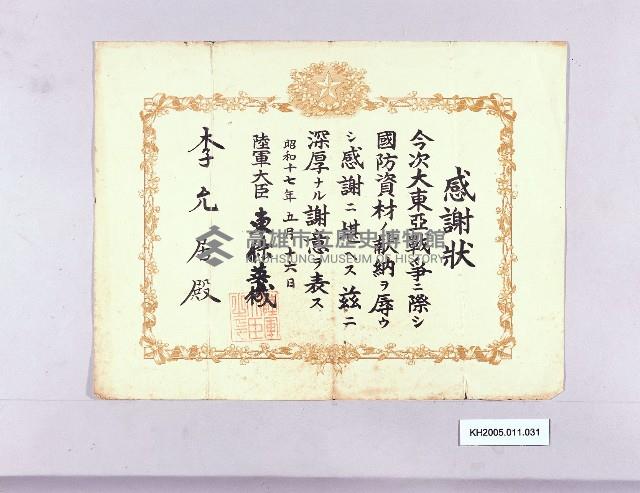 感謝狀
今次大東亞戰爭ニ際シ
國防資材ノ献納ヲ辱ウ
シ感謝ニ堪ヘス茲ニ
深厚ナル謝意ヲ表ス
昭和十七年五月十六日
陸軍大臣 東條英機
李允居殿
高雄市立歷史博物館
KAOHSIUNG MUSEUM OF HISTORY
KH2005.011.031